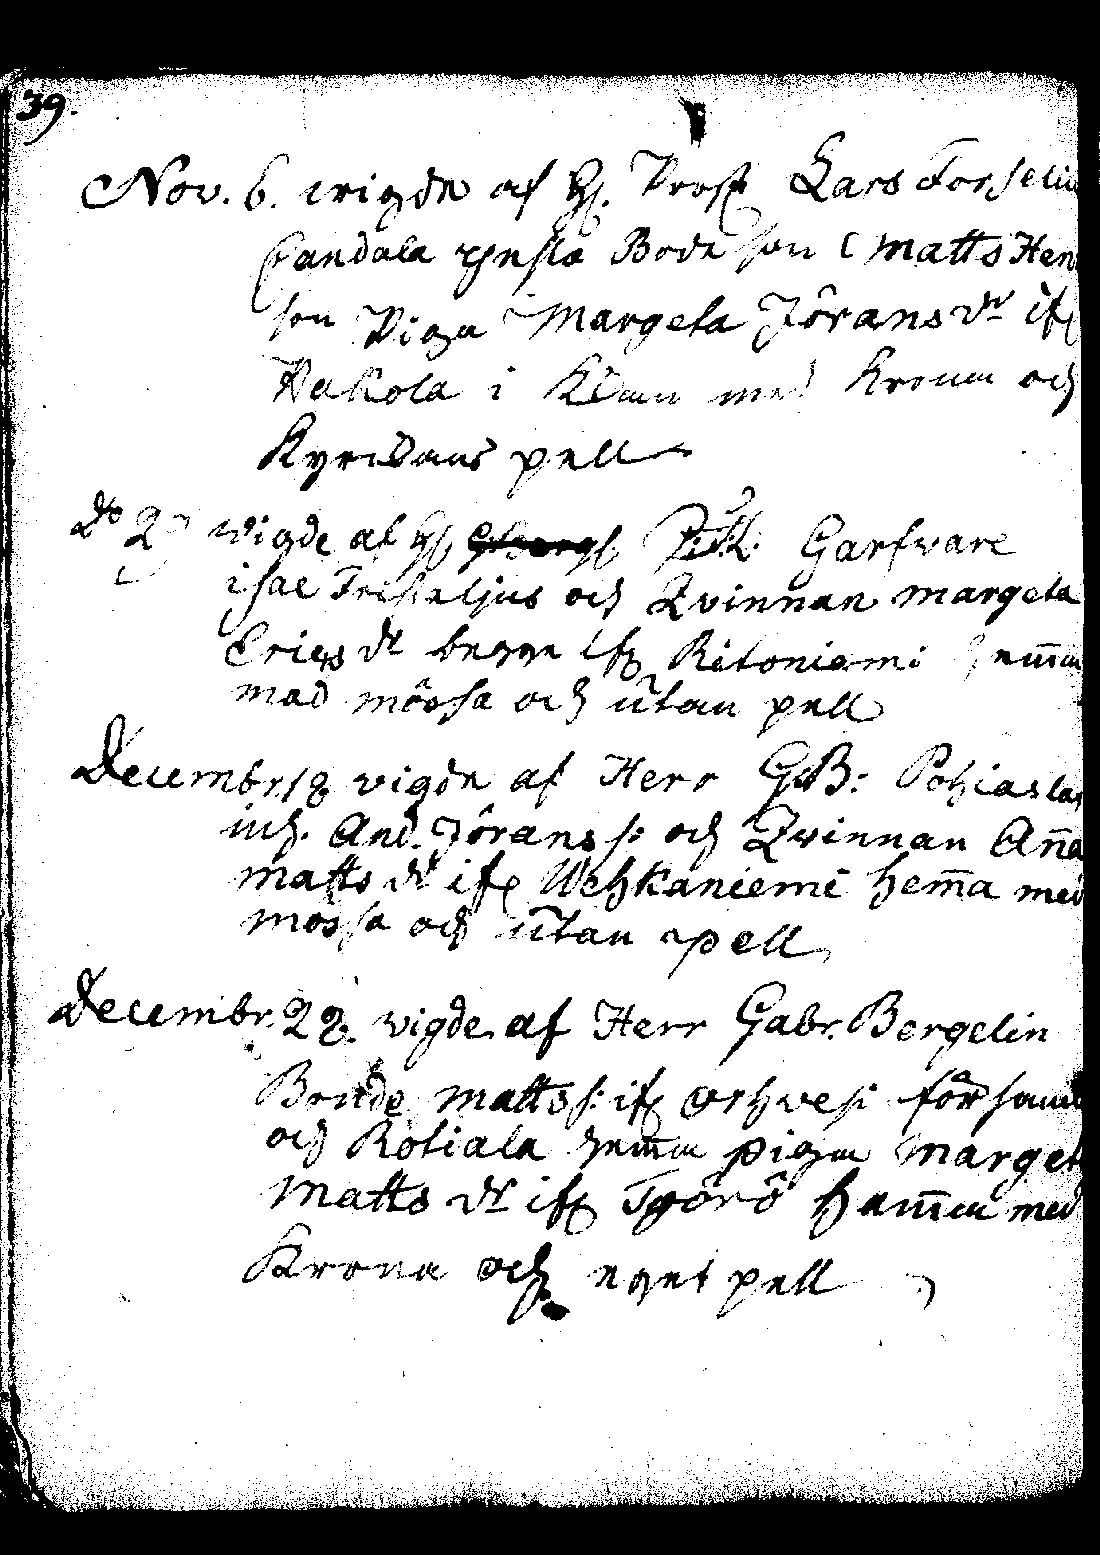 39.
Nov. 6. wigde af H. Prost Lars Forseliu
Candala ynsta Bode son Matts Hen
son Piga Margeta Jörans dr ifr
Pakola i Kläm med Krona och
Kyrckans pell
do wigde af H. Garfware
isac och Qvinnan margeta
Eriqs dr begge ifr Ritoniemi hemma
med mössa och utan pell
Decembr. 18 vigde af Herr G B: Pohiaslax
inh. And. Jörans s: och Qvinnan Anna
matts dr ifr Wehkaniemi hemma med
mossa och utan pell
Decembr. 28. vigde af Herr Gabr. Bergelin
Bonde matts s: ifr församl
och Kotiala hemma piga marget
matts dr ifr Työrö hemma med
Krona och eget pell